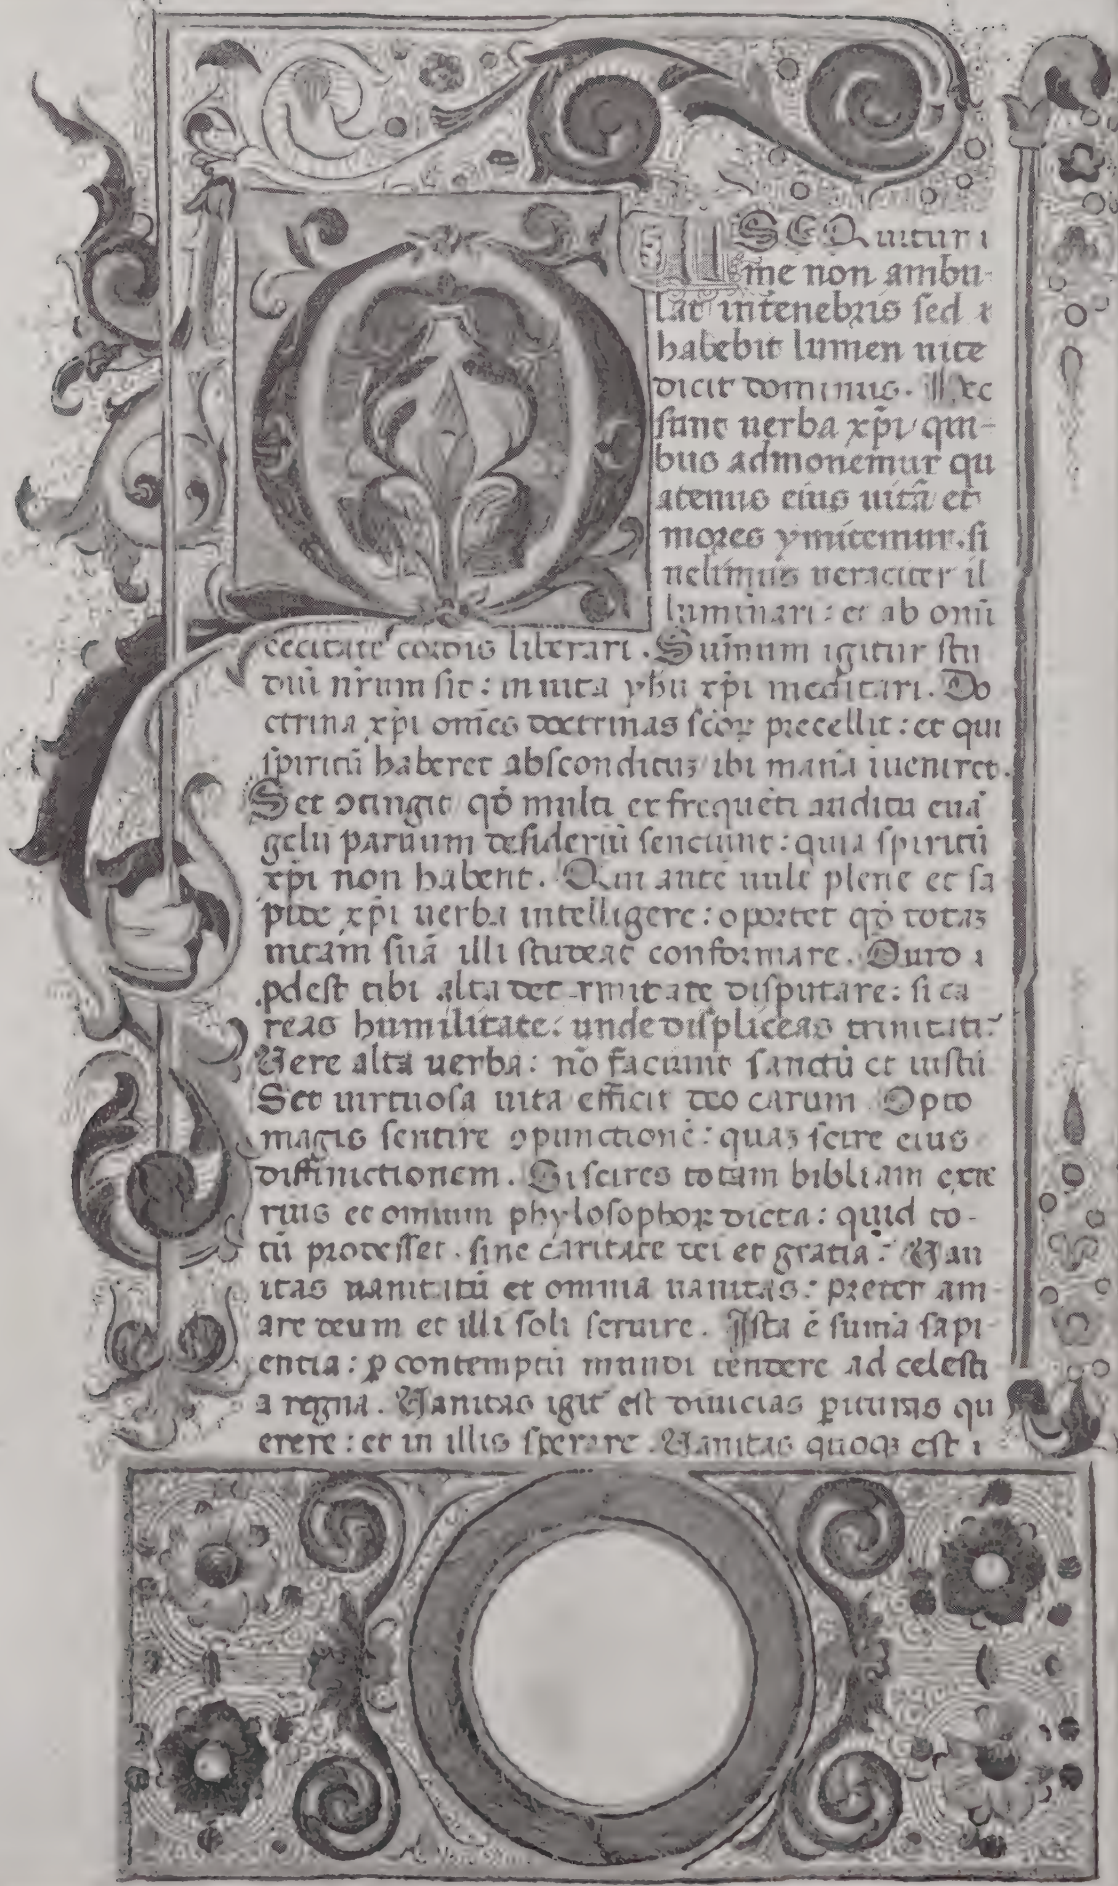 QUI SEQuitur i
me non ambu-
lat in tenebris sed
habebit lumen uite
dicit dominus. Hec
sunt uerba xp̄i qui-
bus admonemur qu
atenus eius uitā et
mores ymitemur. si
uelimus ueraciter il
luminari: et ab omī
cecitate cordis liberari. Sum̄um igitur stu
diūi nr̄um sit: in uita yhu xp̄i meditari. Do
ctrina xp̄i omēs doctrinas scōꝝ precellit: et qui
spiritū haberet absconditūꝫ ibi mānā iueniret.
Set ↄtingit qđ multi ex frequēti auditu euā
gelii paruum desideriū senciunt: quia spiritū
xp̄i non habent. Qui autē uult plene et sa
pide xp̄i uerba intelligere: oportet qđ totaꝫ
uitam suā illi studeat conformare. Quid
pdest tibi alta de trinitate disputare: si ca
reas humilitate: unde displiceas trinitati.
Uere alta uerba: nō faciunt sanctū et iustū
Set uirtuosa uita efficit deo carum Opto
magis sentire ↄpunctionē: quaꝫ scire eius
diffinictionem. Si scires totam bibliam exte
rius et omnium phylosophoꝝ dicta: quid to-
tū prodesset. sine caritate dei et gratia: Uan
itas uanitatū et omnia uanitas: preter am
are deum et illi soli seruire. Ista ē sum̄a sapi
entia: ꝑ contemptū mundi tendere ad celesti
a regna. Uanitas igit̄ est diuicias ꝑituras qu
erere: et in illis sperare. Uanitas quoqꝫ est i